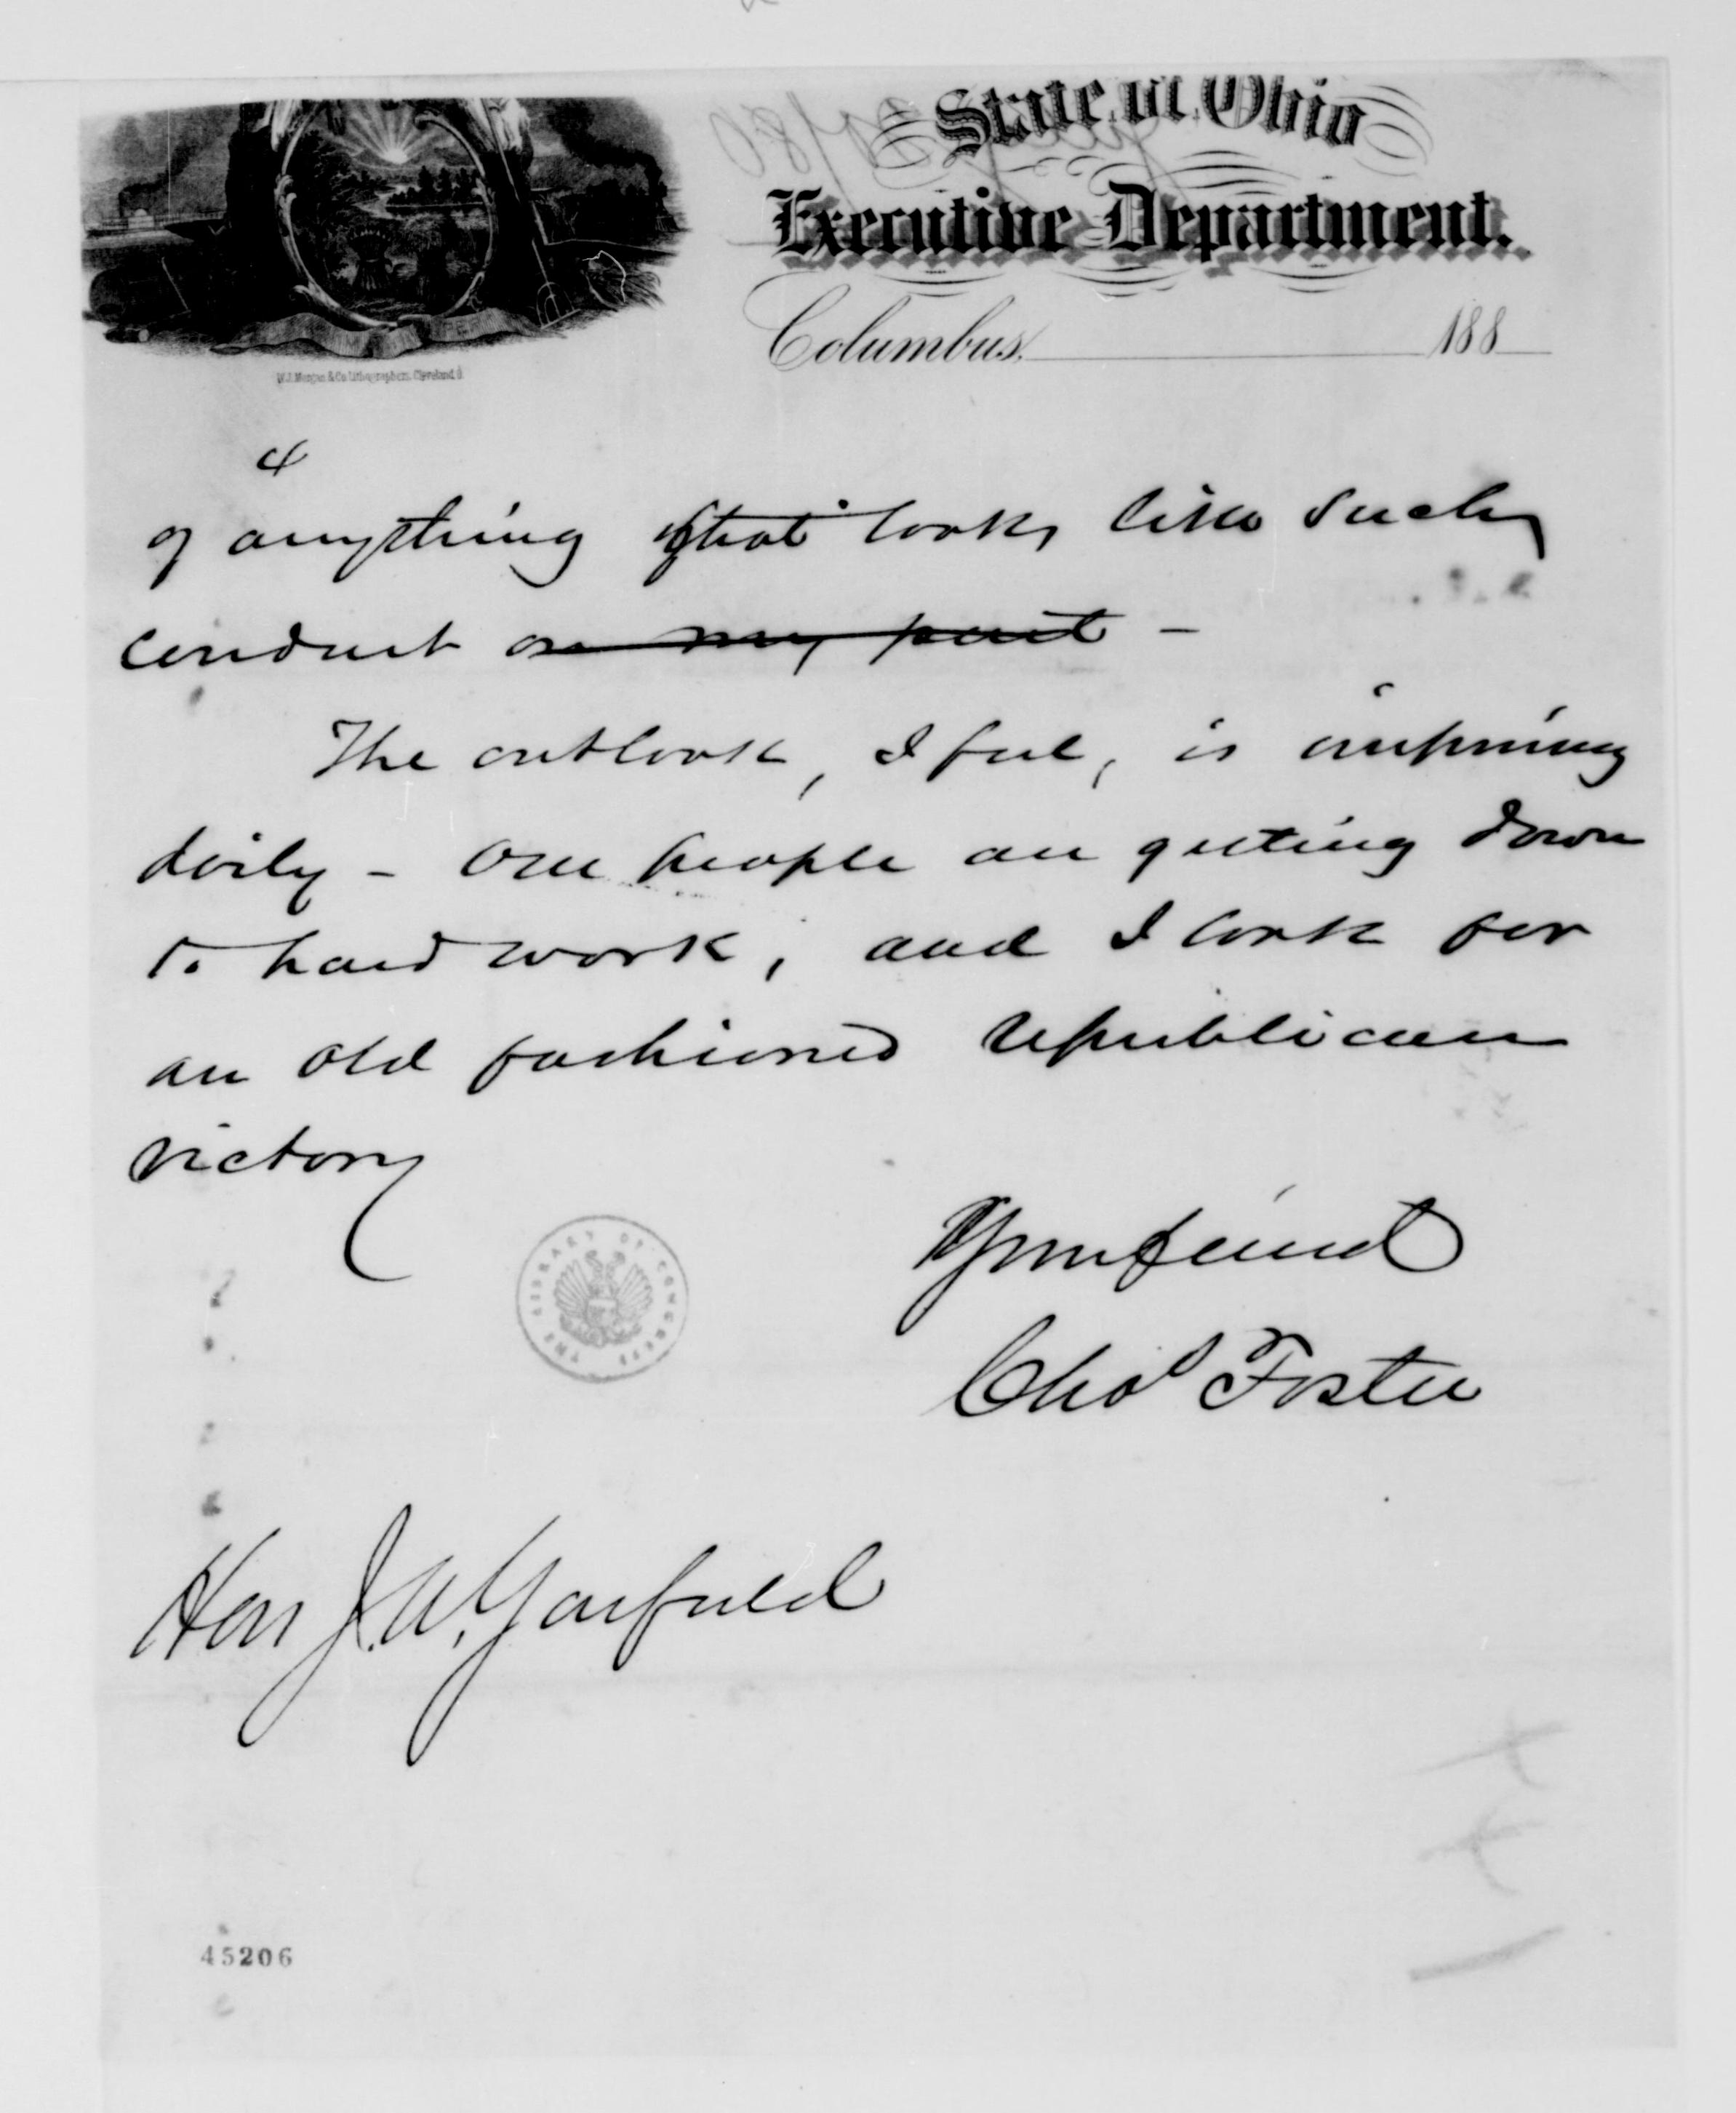 State of Ohio
Executive Department.
Columbus, 188
W.J. Morgan & Co Lithographers, Cleveland O
4
of anything that looks like such
conduct on my part -
The outlook, I feel, is improving
daily - Our people are getting down
to hard work, and I look for
an old fashioned republican
victory
Your friend
Chas Foster
THE LIBRARY OF CONGRESS
Hon J.A. Garfield
45206